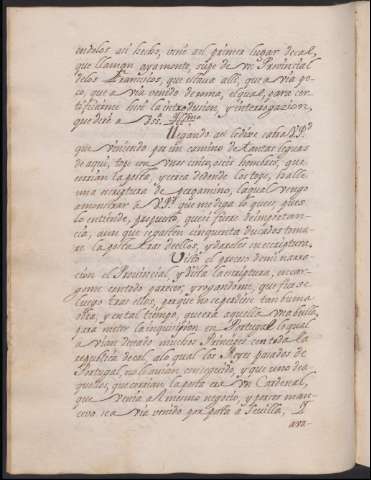 tiendolos asi hecho, viné al primer lugar de cal,
que llaman ayamonte, supe de vn Provincial
delos Franciscos, que estava alli, que avia po-
co, que avia venido de Roma, el qual, para cer-
tificarme hizé la introducion, y interrogacion,
que diré a
llegando asi ledixe, sabra V.P.d
que viniendo por vn camino de tantas leguas
de aqui, topé con vnos cinco, ó seis hombres, que
corrian la posta, y cerca de donde los topé, hallé
vna escriptura de pergamino, la qual vengo
a mostrar a V.P.d que me diga lo que es, pues
lo entiende, por que si fuere de importan-
cia, aun que se gasten cinquenta ducados toma-
ré la posta tras dellos, y dareles su escriptura.
Visto el proceso de mi narra-
cion el Provincial, y vista la escriptura, encar-
gome en todo parecer, y repondome, que fuese
luego tras ellos, porque no se perdiese tan buena
obra, y en tal tiempo, que era aquella vna bulla
para meter la inquisicion en Portugal lo qual
avian deseado muchos Principes con toda la
republica de cal, a lo qual los Reyes pasados de
Portugal, no lo avian, conseguido, y que vno de a
quellos, que corrian la posta era vn Cardenal,
que venia al mismo negocio, y por ser man-
cevo, se avia venido por posta a Sevilla, P
ara-